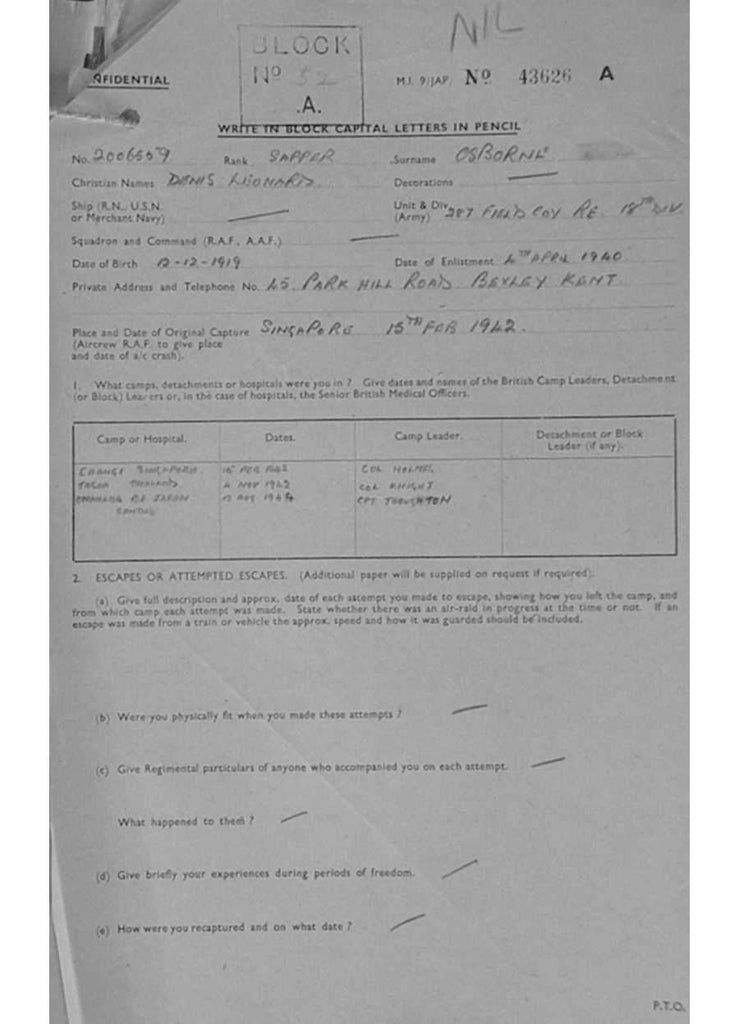 NIL
BLOCK
Nº 52
.A.
NFIDENTIAL
M.I. 9/JAP/ Nº 43626 A
WRITE IN BLOCK CAPITAL LETTERS IN PENCIL
No. Rank SAPPER Surname OSBORNE
Christian Names DENIS LEONARD Decorations
Ship (R.N., U.S.N. or Merchant Navy)
Unit & Div. (Army) 287 FIELD COY RE. 18TH DIV.
Squadron and Command (R.A.F., A.A.F.)
Date of Birth 12-12-1919 Date of Enlistment 4TH APRIL 1940
Private Address and Telephone No. 45. PARK HILL ROAD. BEXLEY KENT.
Place and Date of Original Capture SINGAPORE 15TH FEB 1942.
(Aircrew R.A.F. to give place
and date of a/c crash).
1. What camps, detachments or hospitals were you in ? Give dates and names of the British Camp Leaders, Detachment
(or Block) Leaders or, in the case of hospitals, the Senior British Medical Officers.
Camp or Hospital. Dates. Camp Leader. Detachment or Block
Leader (if any).
CHANGI SINGAPORE 15 FEB 1942 COL HOLMES
THAILAND 4 NOV 1942 COL KNIGHT
JAPAN AUG 1944 CPT
2. ESCAPES OR ATTEMPTED ESCAPES. (Additional paper will be supplied on request if required).
(a) Give full description and approx. date of each attempt you made to escape, showing how you left the camp, and
from which camp each attempt was made. State whether there was an air-raid in progress at the time or not. If an
escape was made from a train or vehicle the approx. speed and how it was guarded should be included.
(b) Were you physically fit when you made these attempts ?
(c) Give Regimental particulars of anyone who accompanied you on each attempt.
What happened to them ?
(d) Give briefly your experiences during periods of freedom.
(e) How were you recaptured and on what date ?
P.T.O.